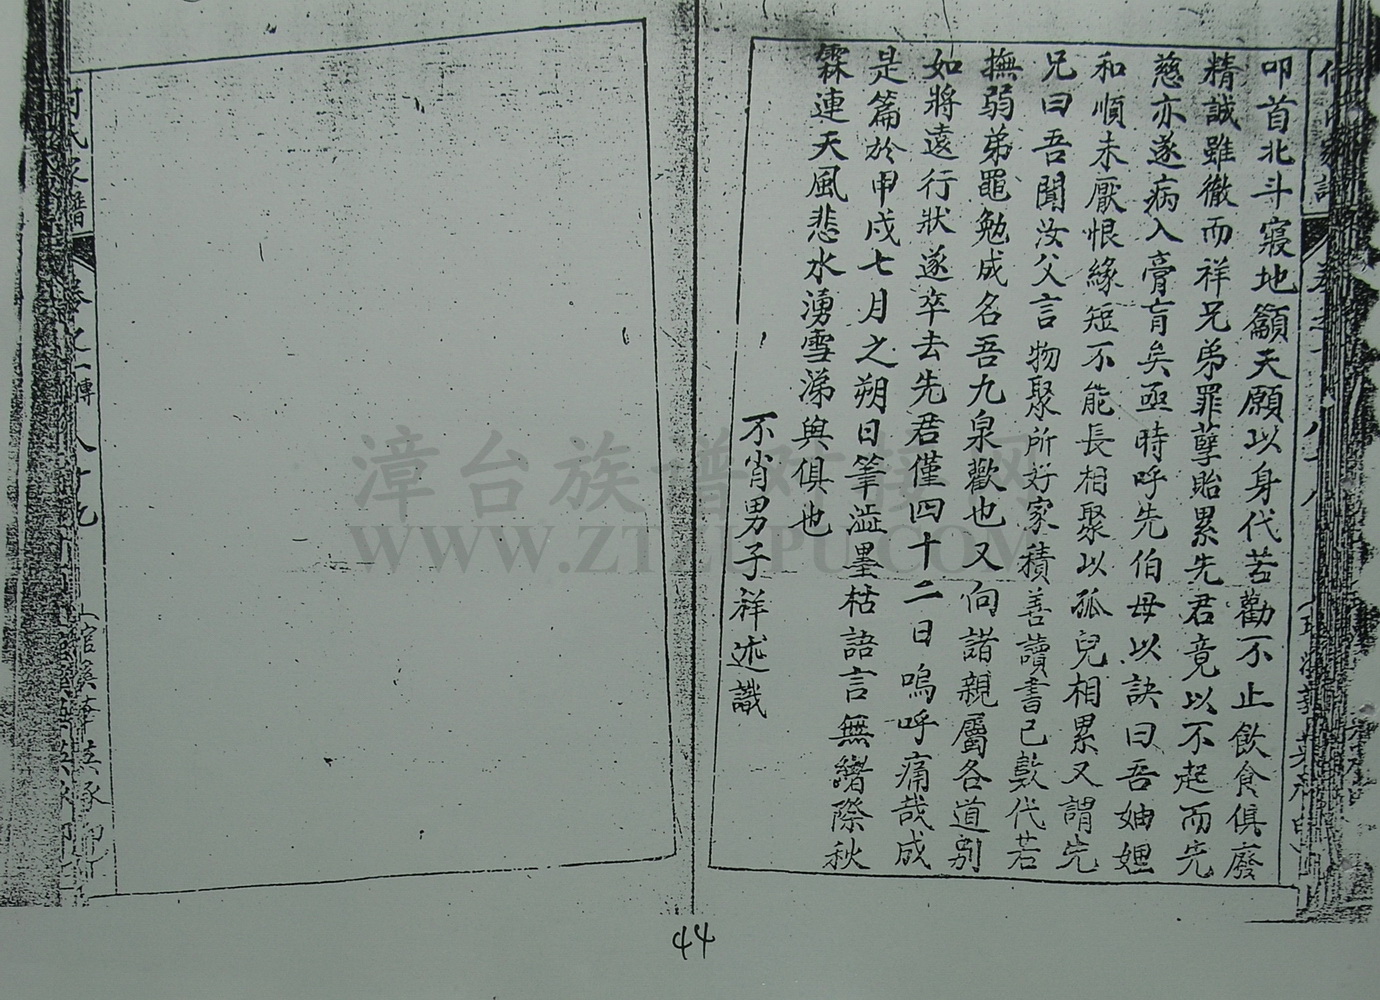 叩首北斗寢地籲天願以身代苦勸不止飲食俱廢
精誠雖徹而祥兄弟罪孽貽累先君竟以不起而先
慈亦遂病入膏肓矣亟時呼先伯母以訣曰吾妯娌
和順未厭恨緣短不能長相聚以孤兒相累又謂先
兄曰吾聞汝父言物聚所好家積善讀書已數代若
撫弱弟黽勉成名吾九泉歡也又向諸親屬各道別
如將遠行狀遂卒去先君僅四十二日嗚呼痛哉成
是篇於甲戌七月之朔日筆澁墨枯語言無緒際秋
霖連天風悲水湧雪涕與俱也
不肖男子祥述識
氏家譜
卷之一傳
八十九
漳台族谱对接网
WWW.ZTZUPU.COM
44